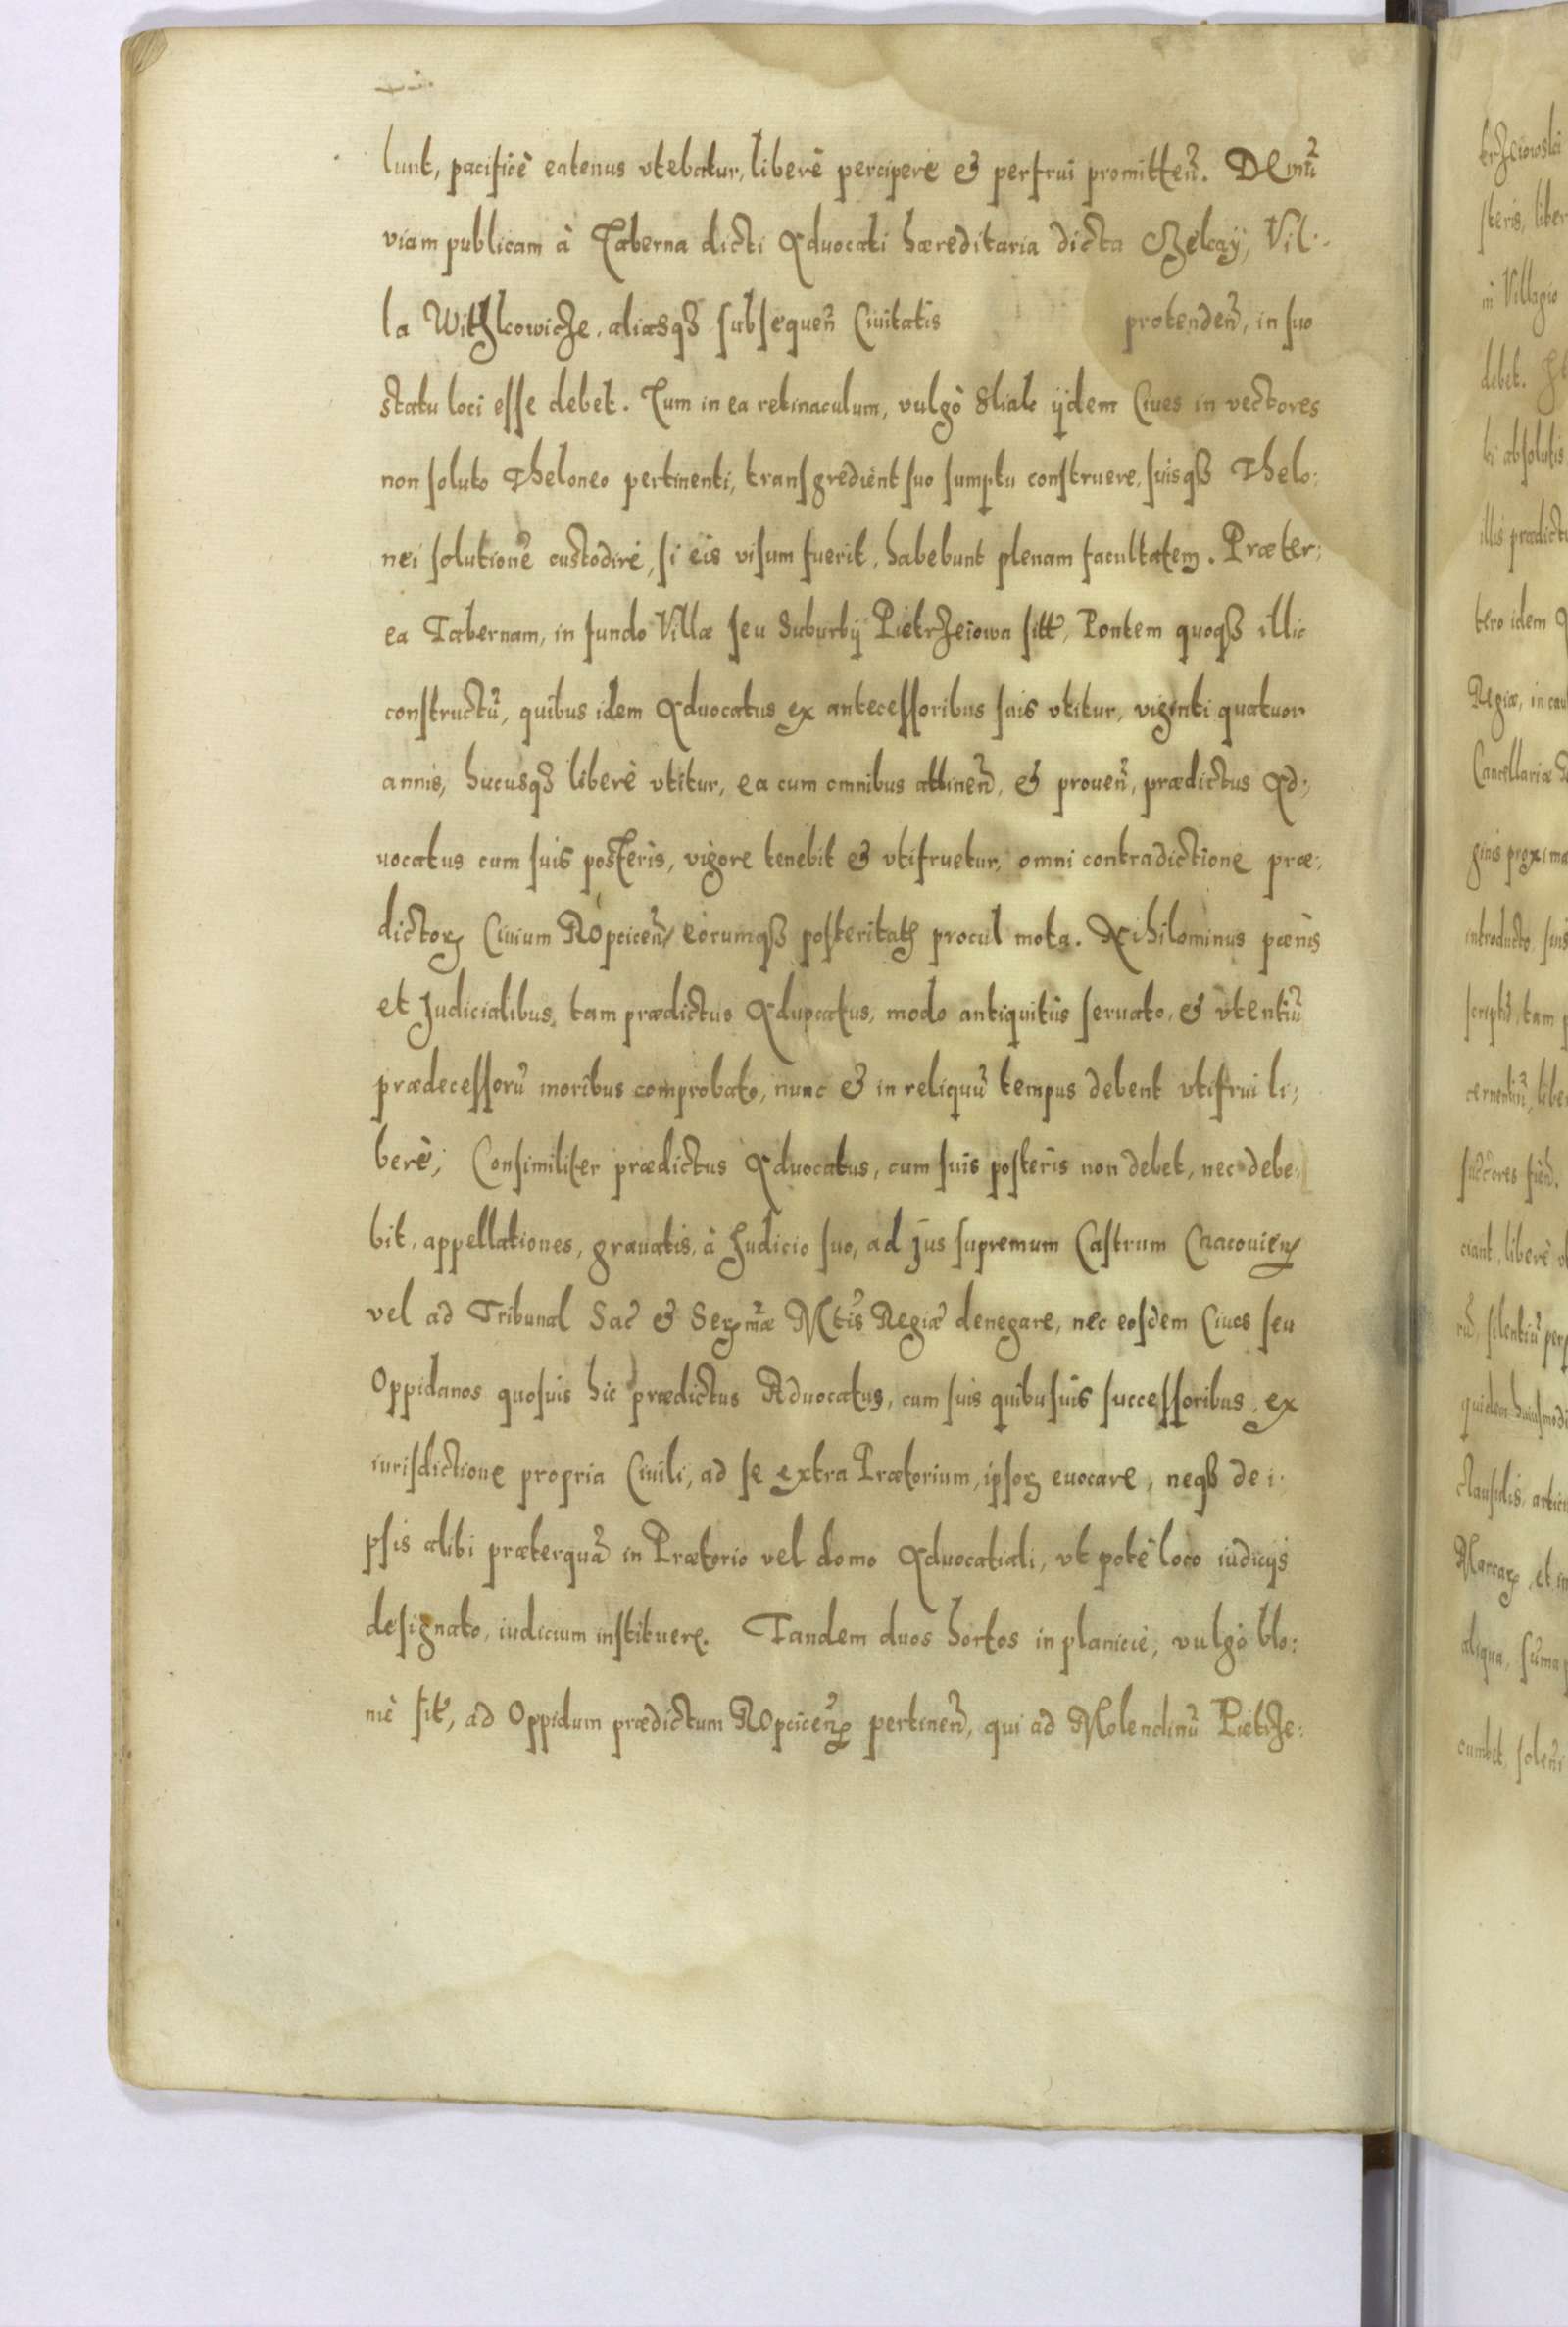 lunt, pacificè eatenus vtebatur, liberè percipere & perfrui promitteñ. DEmũ
viam publicam à Taberna dicti Aduocati hæreditaria dicta Czekay, Vil-
la Withkowicze, aliasq3 subsequeñ Ciuitatis protendeñ, in suo
statu loci esse debet. Tum in ea retinaculum, vulgò Sliak ijdem Ciues in vectores
non soluto Theloneo pertinenti, transgredient suo sumptu construere, suisqȝ Thelo:
nei solutionẽ custodire, si eis visum fuerit, habebunt plenam facultatem. Præter:
ea Tabernam, in fundo Villæ seu Suburbij Pietrzeiowa sitt, Pontem quoqȝ illic
constructũ, quibus idem Aduocatus ex antecessoribus suis vtitur, viginti quatuor
annis, hucusqȝ liberè vtitur, ea cum omnibus attineñ, & proueñ, prædictus Ad:
uocatus cum suis posteris, vigore tenebit & vtifruetur, omni contradictione præ:
dictorꝝ Ciuium Ropciceñ, eorumqȝ posteritatꝭ procul mota. Nihilominus pœnis
et Judicialibus, tam prædictus Aduocatus, modo antiquitùs seruato, & vtentiũ
prædecessorũ moribus comprobato, nunc & in reliquũ tempus debent vtifrui li:
berè; Consimiliter prædictus Aduocatus, cum suis posteris non debet, nec debe:
bit, appellationes, grauatis, à Judicio suo, ad jus supremum Castrum Cracouieñ
vel ad Tribunal Sac̃ & Serꝫmæ Mtis̃ Regiæ denegare, nec eosdem Ciues seu
Oppidanos quosuis hic prædictus Aduocatus, cum suis quibusuis successoribus, ex
iurisdictione propria Ciuili, ad se extra Prætorium, ipsorꝝ euocare, neqȝ de i:
psis alibi præterquã in Prætorio vel domo Aduocatiali, vt potè loco iudicijs
designato, iudicium instituere. Tandem duos hortos in planicie, vulgò blo:
niè sit, ad Oppidum prædictum Ropciceñ pertineñ, qui ad Molendinũ Pietrze: